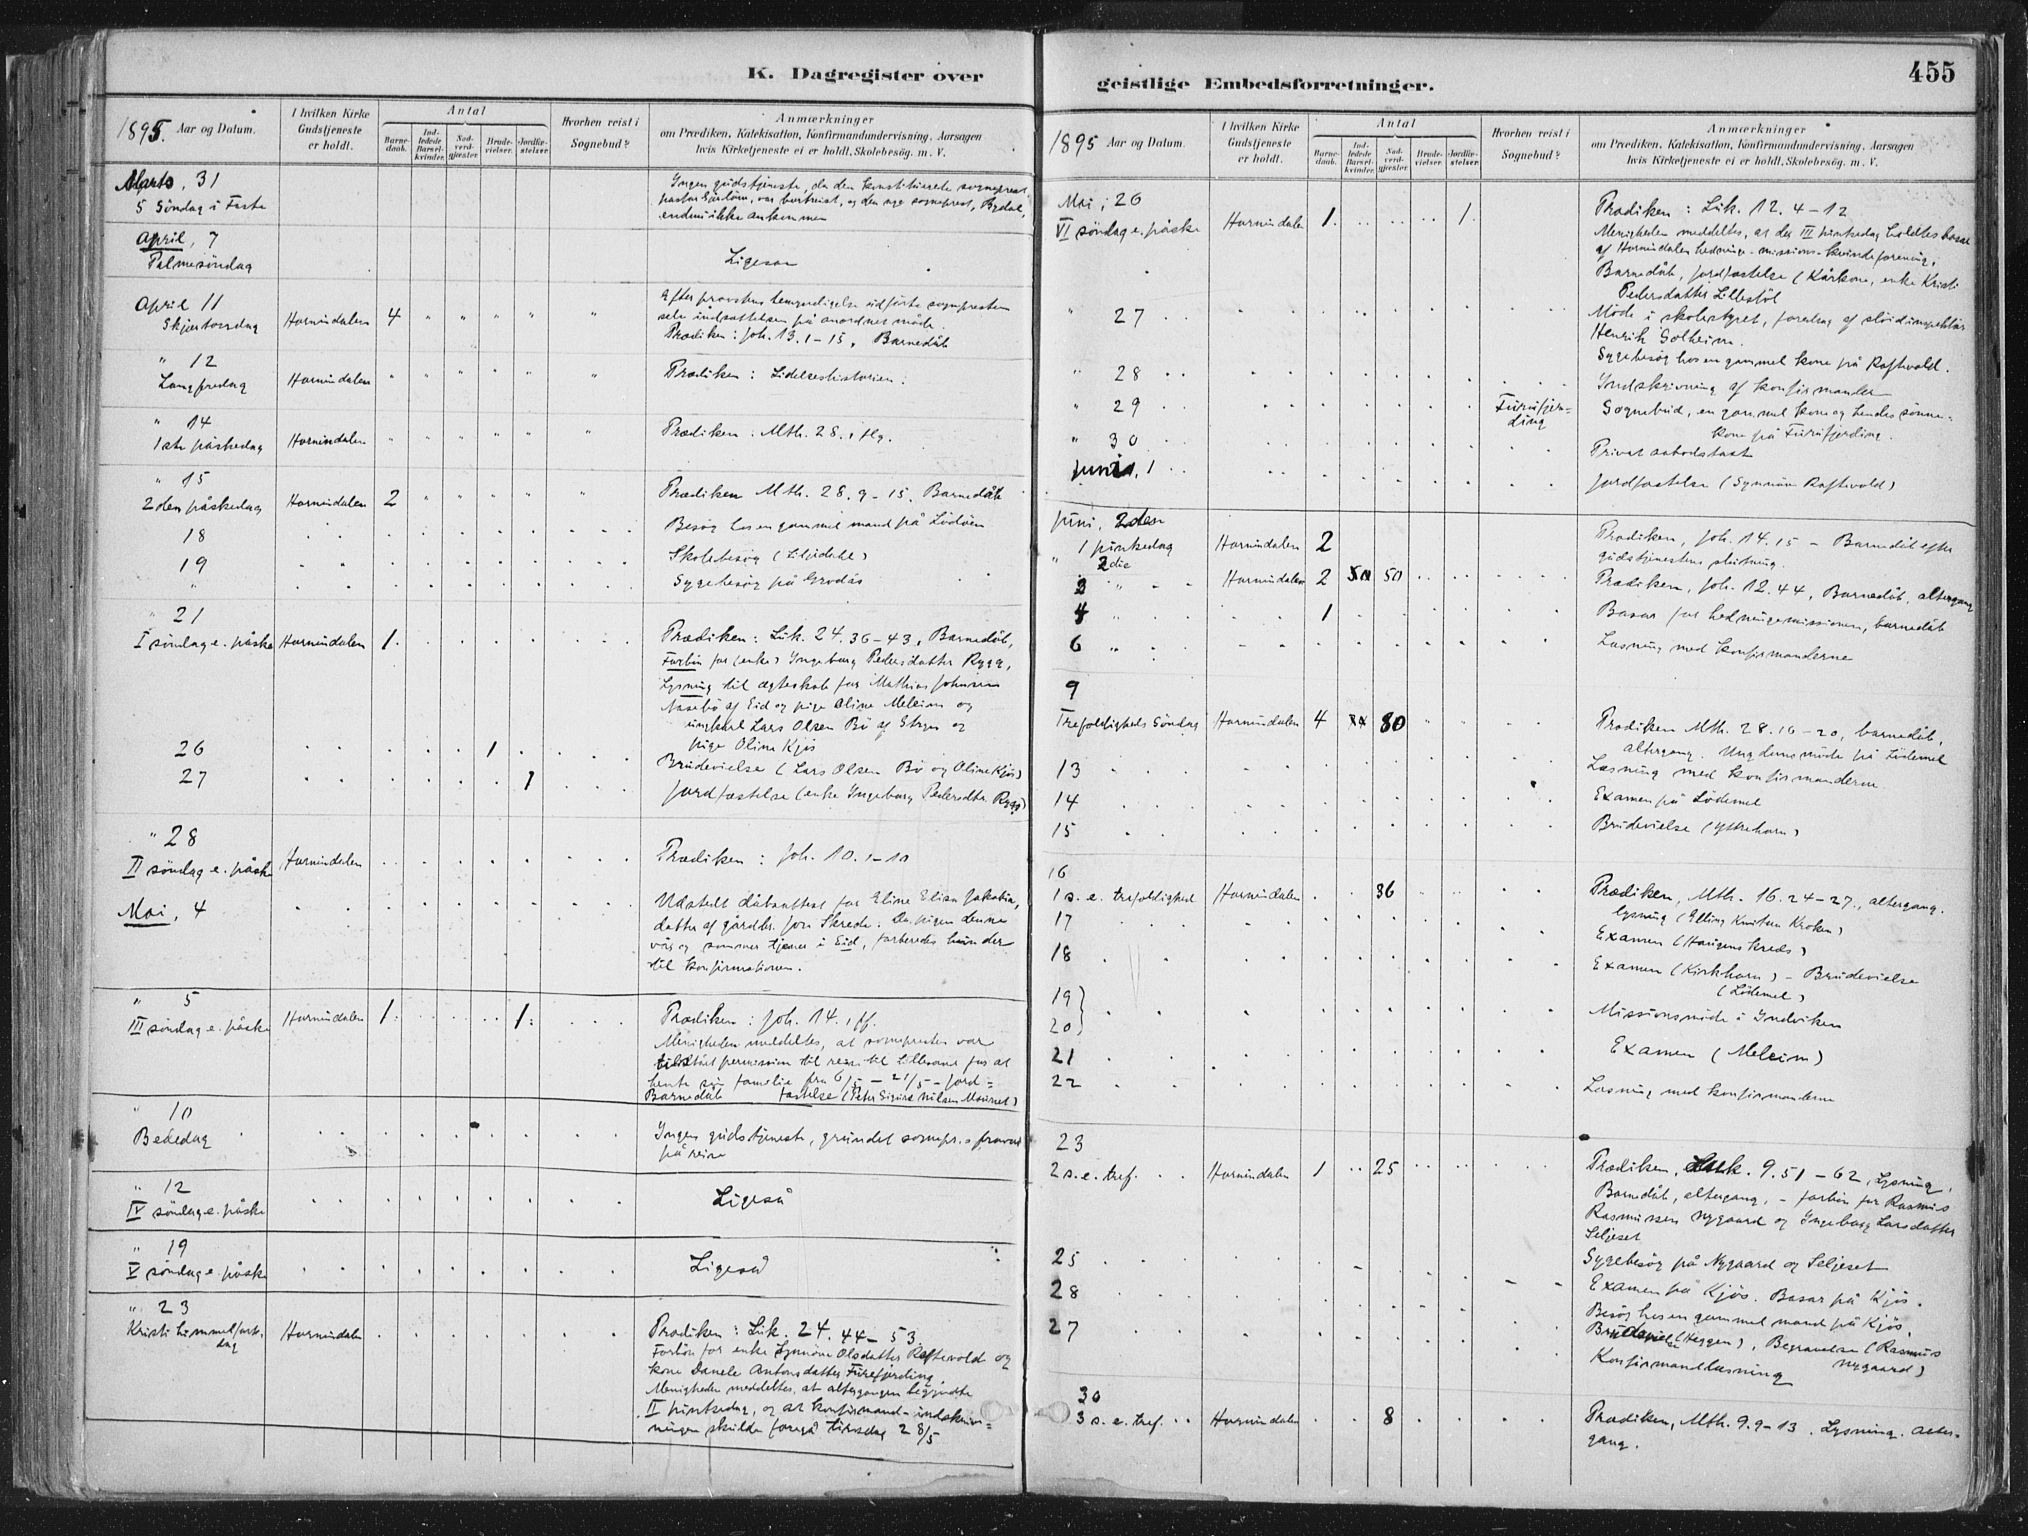 K. Dagregister over
1895. Aar og Datum.
I hvilken Kirke Gudstjeneste er holdt.
Antal
Barnedaab.
Indledede Barselkvinder.
Nadverdgjæster
Brudevielser.
Jordfæstelser
Hvorhen reist i Sognebud?
Anmærkninger
om Prædiken, Katekisation, Konfirmandundervisning. Aarsagen
hvis Kirketjeneste ei er holdt. Skolebesög. m. V.
Marts, 31
5 Söndag i Faste
Ingen gudstjeneste, da den konstituerede sogneprest,
pastor, var bortreist, og den nye sogneprest, Rydal,
endnu ikke ankommen
April, 7
Palmesöndag
Ligesaa
April 11
Skjærtorsdag Hornindalen 4
Efter provstens bemyndigelse udførte sognepresten
selv indsættelsen på anordnet måde.
Prædiken: Joh. 13. 1-15. Barnedåb
" 12
Langfredag Hornindalen
Prædiken: Lidelseshistorien.
" 14
1ste påskedag Hornindalen
Prædiken: Mth. 28. 1 flg.
" 15
2den påskedag Hornindalen 2
Prædiken Mth. 28. 9-15. Barnedåb
18 Besøg hos en gammel mand på Lödöen
19 Skolebesøg (Liljedahl)
" Sygebesøg på Grodås
" 21
I søndag e. påske Hornindalen 1.
Prædiken: Luk. 24. 36-43. Barnedåb.
Forbön for (enke) Ingeborg Pedersdatter Rygg.
Lysning til ægteskab for Mathias Johnsen
Nasebö af Eid og pige Oline Meleim og
ungkarl Lars Olsen Bö af Stryn og
pige Oline Kjös
26 1 Brudevielse (Lars Olsen Bö og Oline Kjös)
27 1 Jordfæstelse (enke Ingeborg Pedersdtr. Rygg)
" 28
II søndag e. påske Hornindalen
Prædiken: Joh. 10. 1-10
Mai, 4
Udstedt dåbsattest for Eline Elisa Jakobia,
datter af gårdbr. Jon Skrede. Da pigen denne
vår og sommer tjener i Eid, forberedes hun der
til konfirmationen.
" 5
III søndag e. påske Hornindalen 1. 1.
Prædiken: Joh. 14. 1 ff.
Menigheden meddeltes, at sognepresten var
tilstået permission til reise til Lillesand for at
hente sin familie fra 6/5 - 21/5 - Jord=
Barnedåb fæstelse (Peter Sigurd Nilsen Maurset)
" 10
Bededag
Ingen gudstjeneste, grundet sognepr.s fravær
på reise
" 12
IV søndag e. påske
Ligeså
" 19
V søndag e. påske
Ligeså
" 23
Kristi himmelfarts- Hornindalen
dag
Prædiken: Luk. 24. 44-53.
Forbön for enke Synnöve Olsdatter Raftevold og
kone Danele Antonsdatter Furefjerding.
Menigheden meddeltes, at altergangen begyndte
II pinsedag, og at konfirmand-indskriv=
ningen skulde foregå tirsdag 28/5
geistlige Embedsforretninger.
455
1895 Aar og Datum.
I hvilken Kirke Gudstjeneste er holdt.
Antal
Barnedaab.
Indledede Barselkvinder.
Nadverdgjæster
Brudevielser.
Jordfæstelser.
Hvorhen reist i Sognebud?
Anmærkninger
om Prædiken, Katekisation, Konfirmandundervisning. Aarsagen
hvis Kirketjeneste ei er holdt. Skolebesög. m. V.
Mai, 26
VI søndag e. påske Hornindalen 1. 1.
Prædiken: Luk. 12. 4-12
Menigheden meddeltes, at der III pinsedag holdtes basar
af Hornindalen hednings-missions-kvindeforening.
Barnedåb, jordfæstelse (Kårkone, enke Kristi
Pedersdatter Lillestöl
" 27
Møde i skolestyret, foredrag af slöidinspektör
Henrik Solheim.
Sygebesøg hos en gammel kone på Raftevold.
" 28 Indskrivning af konfirmander
" 29 Furufjer=
ding
Sognebud, en gammel kone og hendes sønne=
kone på Furufjerding.
" 30 Privat
Juni, 1 Jordfæstelse (Synnöve Raftevold)
Juni, 2den
1 pinsedag Hornindalen 2
Prædiken, Joh. 14. 15 - Barnedåb efter
gudstjenestens slutning.
" 2die
3 Hornindalen 2 50
Prædiken, Joh. 12. 44, Barnedåb, altergang
4 1 Basar for hedningemissionen, barnedåb
6 Læsning med konfirmanderne
9
Trefoldigheds Söndag Hornindalen 4 80
Prædiken Mth. 28. 16-20, barnedåb,
altergang. Ungdomsmöde på Lödemel
13 Læsning med konfirmanderne
14 Examen på Lödemel
15 Brudevielse (Yttrehorn)
16
1 s. e. trefoldighed Hornindalen 36
Prædiken, Mth. 16. 24-27., altergang.
lysning (Elling Knutsen Kroken)
17 Examen (Haugens kreds)
18 Examen (Kirkhorn) - Brudevielse
(Lödemel)
19 }
20 } Missionsmöde i Indviken
21 Examen (Meleim)
22 Læsning med konfirmanderne
23
2 s. e. tref. Hornindalen 1 25
Prædiken, Luk. 9. 51-62, Lysning,
Barnedåb, altergang, - forbön for Rasmus
Rasmussen Nygaard og Ingeborg Larsdatter
Seljeset
25 Sygebesøg på Nygaard og Seljeset
28 Examen på Kjös. Basar på Kjös.
Besøg hos en gammel mand på Kjös.
27 Brudevielse (Heggen), Begravelse (Rasmus
Nygaard)
Konfirmandlæsning
30
3 s. e. tref. Hornindalen 8
Prædiken, Mth. 9. 9-13. Lysning. Alter=
gang.